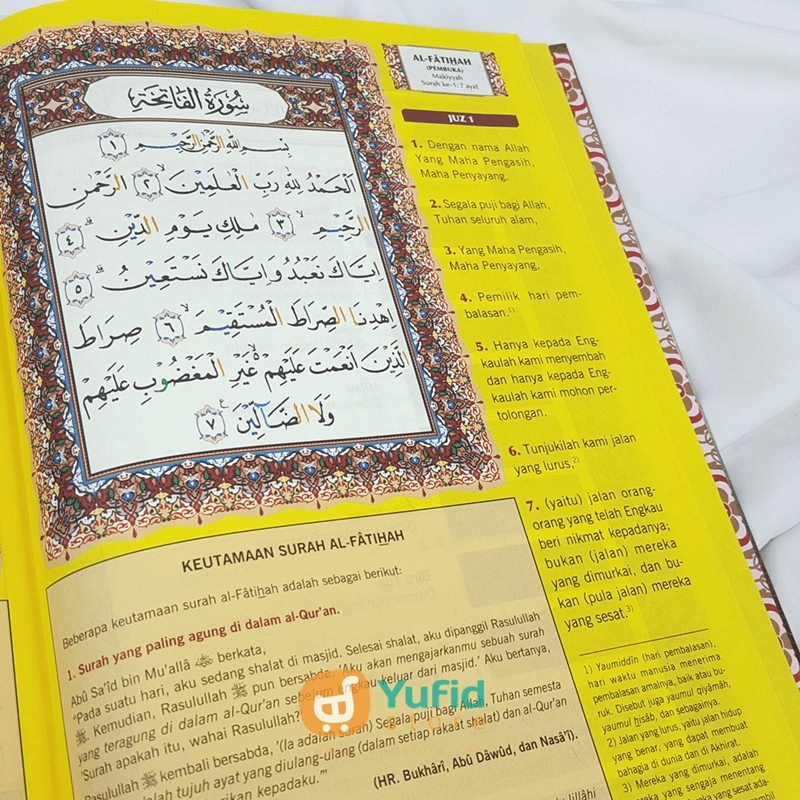 سُورَةُ الْفَاتِحَةِ
بِسْمِ اللّٰهِ الرَّحْمٰنِ الرَّحِيْمِ ١
اَلْحَمْدُ لِلّٰهِ رَبِّ الْعٰلَمِيْنَۙ ٢ الرَّحْمٰنِ
الرَّحِيْمِۙ ٣ مٰلِكِ يَوْمِ الدِّيْنِۗ ٤
اِيَّاكَ نَعْبُدُ وَاِيَّاكَ نَسْتَعِيْنُۗ ٥
اِهْدِنَا الصِّرَاطَ الْمُسْتَقِيْمَۙ ٦ صِرَاطَ
الَّذِيْنَ اَنْعَمْتَ عَلَيْهِمْ ەۙ غَيْرِ الْمَغْضُوْبِ عَلَيْهِمْ
وَلَا الضَّاۤلِّيْنَ ٧
AL-FÂTIḤAH
(PEMBUKA)
Makiyyah
Surah ke-1: 7 ayat
JUZ 1
1. Dengan nama Allah
Yang Maha Pengasih,
Maha Penyayang.
2. Segala puji bagi Allah,
Tuhan seluruh alam,
3. Yang Maha Pengasih,
Maha Penyayang,
4. Pemilik hari pem-
balasan.1)
5. Hanya kepada Eng-
kaulah kami menyembah
dan hanya kepada Eng-
kaulah kami mohon per-
tolongan.
6. Tunjukilah kami jalan
yang lurus,2)
7. (yaitu) jalan orang-
orang yang telah Engkau
beri nikmat kepadanya;
bukan (jalan) mereka
yang dimurkai, dan bu-
kan (pula jalan) mereka
yang sesat.3)
KEUTAMAAN SURAH AL-FÂTIḤAH
Beberapa keutamaan surah al-Fâtiḥah adalah sebagai berikut:
1. Surah yang paling agung di dalam al-Qur'an.
Abû Sa'îd bin Mu'allâ ﷺ berkata,
"Pada suatu hari, aku sedang shalat di masjid. Selesai shalat, aku dipanggil Rasulullah
ﷺ. Kemudian, Rasulullah ﷺ pun bersabda, 'Aku akan mengajarkanmu sebuah surah
yang teragung di dalam al-Qur'an sebelum engkau keluar dari masjid.' Aku bertanya,
'Surah apakah itu, wahai Rasulullah?'
Rasulullah ﷺ kembali bersabda, '(Ia adalah surah) Segala puji bagi Allah, Tuhan semesta
tujuh ayat yang diulang-ulang (dalam setiap rakaat shalat) dan al-Qur'an
kepadaku.'"
(HR. Bukhârî, Abû Dâwûd, dan Nasâ'î).
1) Yaumiddîn (hari pembalasan),
hari waktu manusia menerima
pembalasan amalnya, baik atau bu-
ruk. Disebut juga yaumul qiyâmah,
yaumul ḥisâb, dan sebagainya.
2) Jalan yang lurus, yaitu jalan hidup
yang benar, yang dapat membuat
bahagia di dunia dan di Akhirat.
3) Mereka yang dimurkai, adalah
mereka yang sengaja menentang
Yufid
store